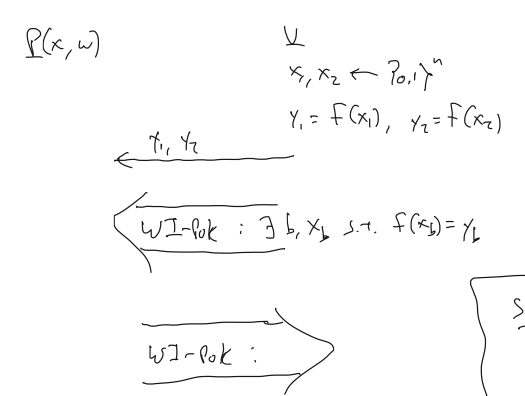 P(x, w)
V
x₁, x₂ ← {0,1}ⁿ
y₁ = f(x₁), y₂ = f(x₂)
y₁, y₂
WI-PoK : ∃ b, x_b s.t. f(x_b) = y_b
WI-PoK :
S